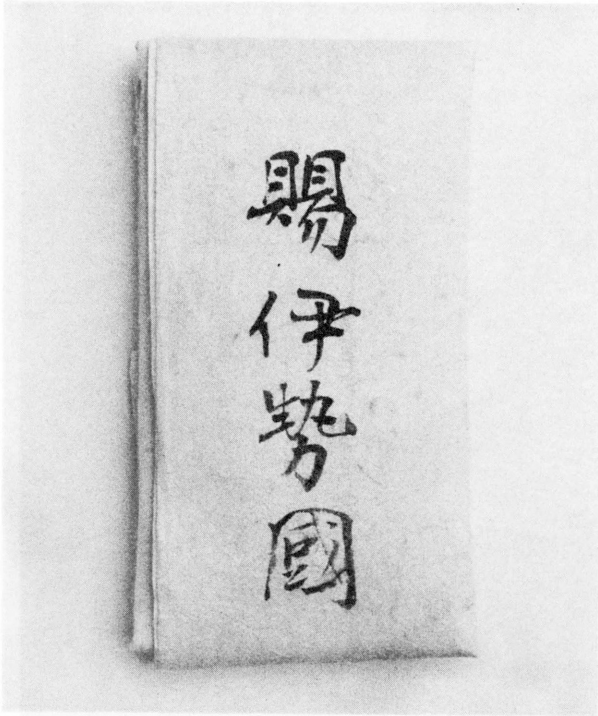 賜伊勢國